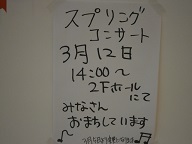 スプリング
コンサート
3月12日
14:00～
2Fホール
にて
みなさん
おまちしています